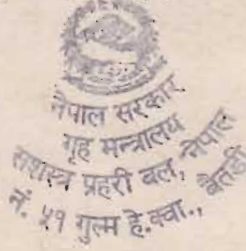 नेपाल सरकार
गृह मन्त्रालय
सशस्त्र प्रहरी बल, नेपाल
नं. ५१ गुल्म हे.क्वा., बैतडी